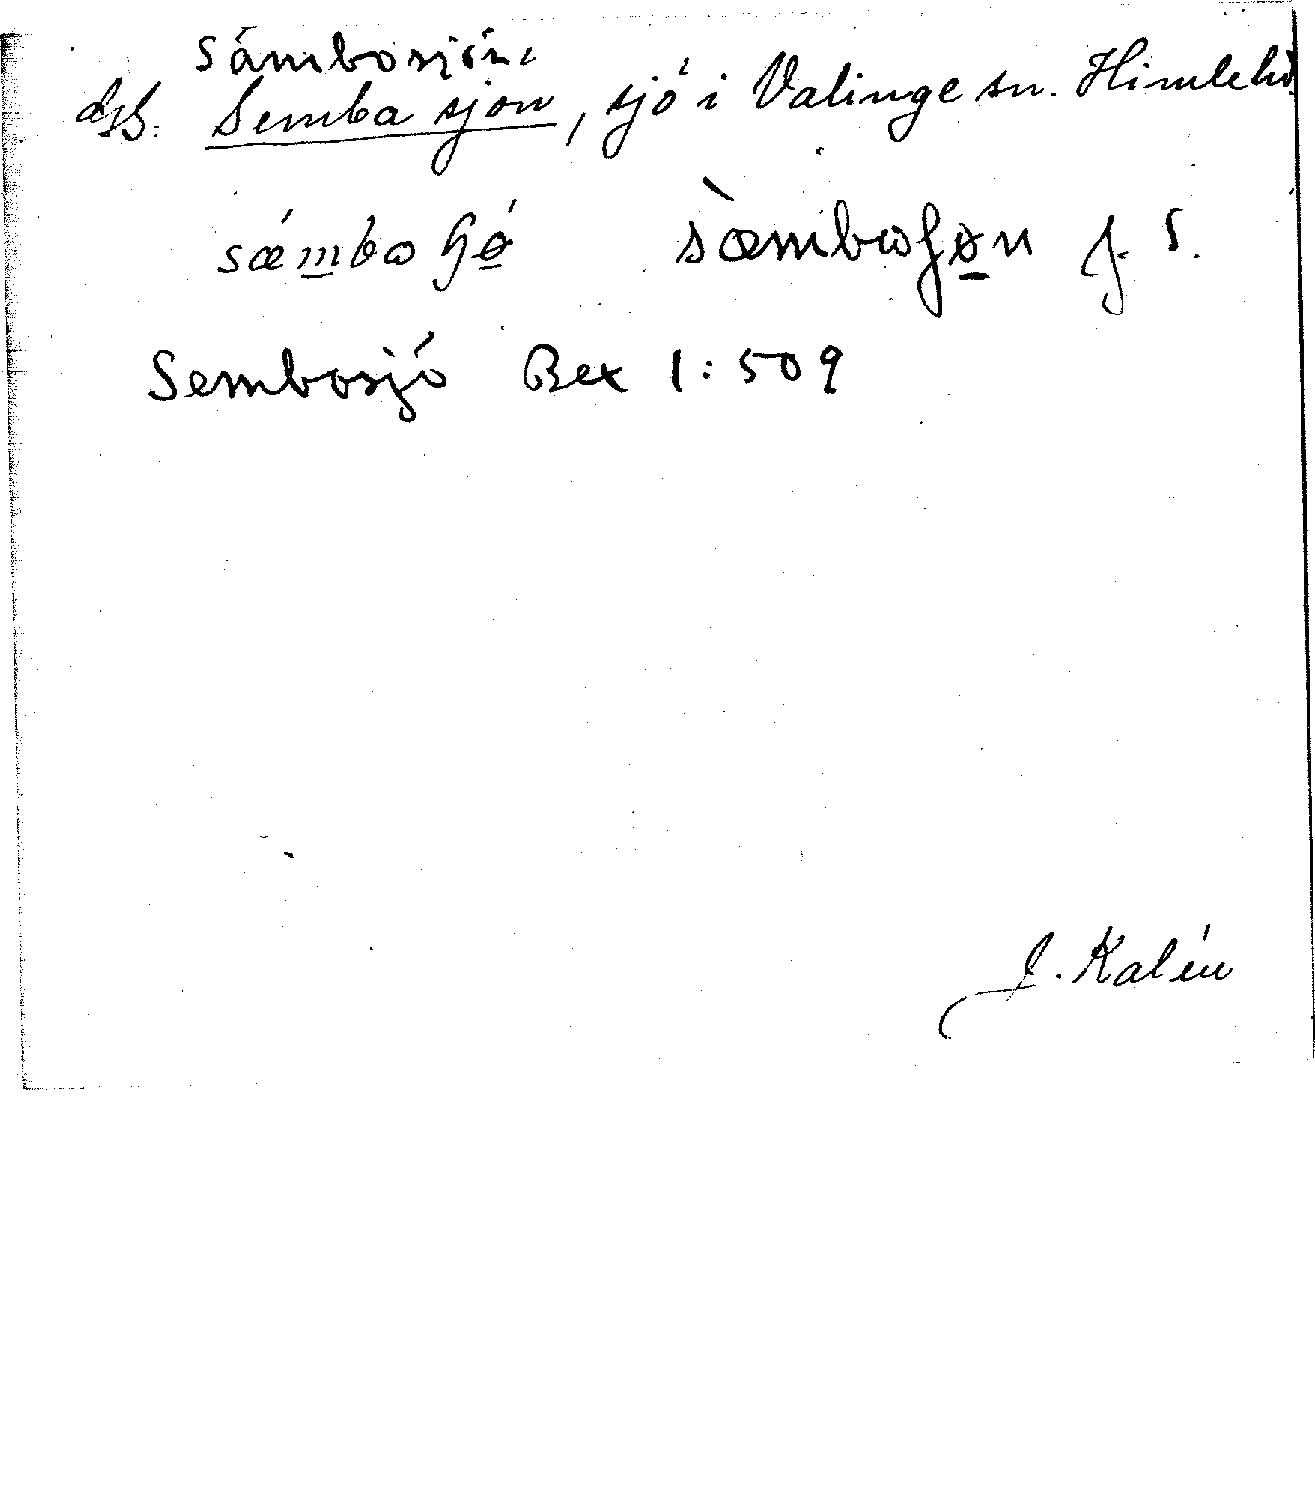 Sämbosjön.
dsb. Semba sjön, sjö i Valinge sn. Himlehd.
sǽmbaɧǿ̱ sæ̀mbaɧø̱n f. S.
Sembosjö Bex 1:509
J. Kalén